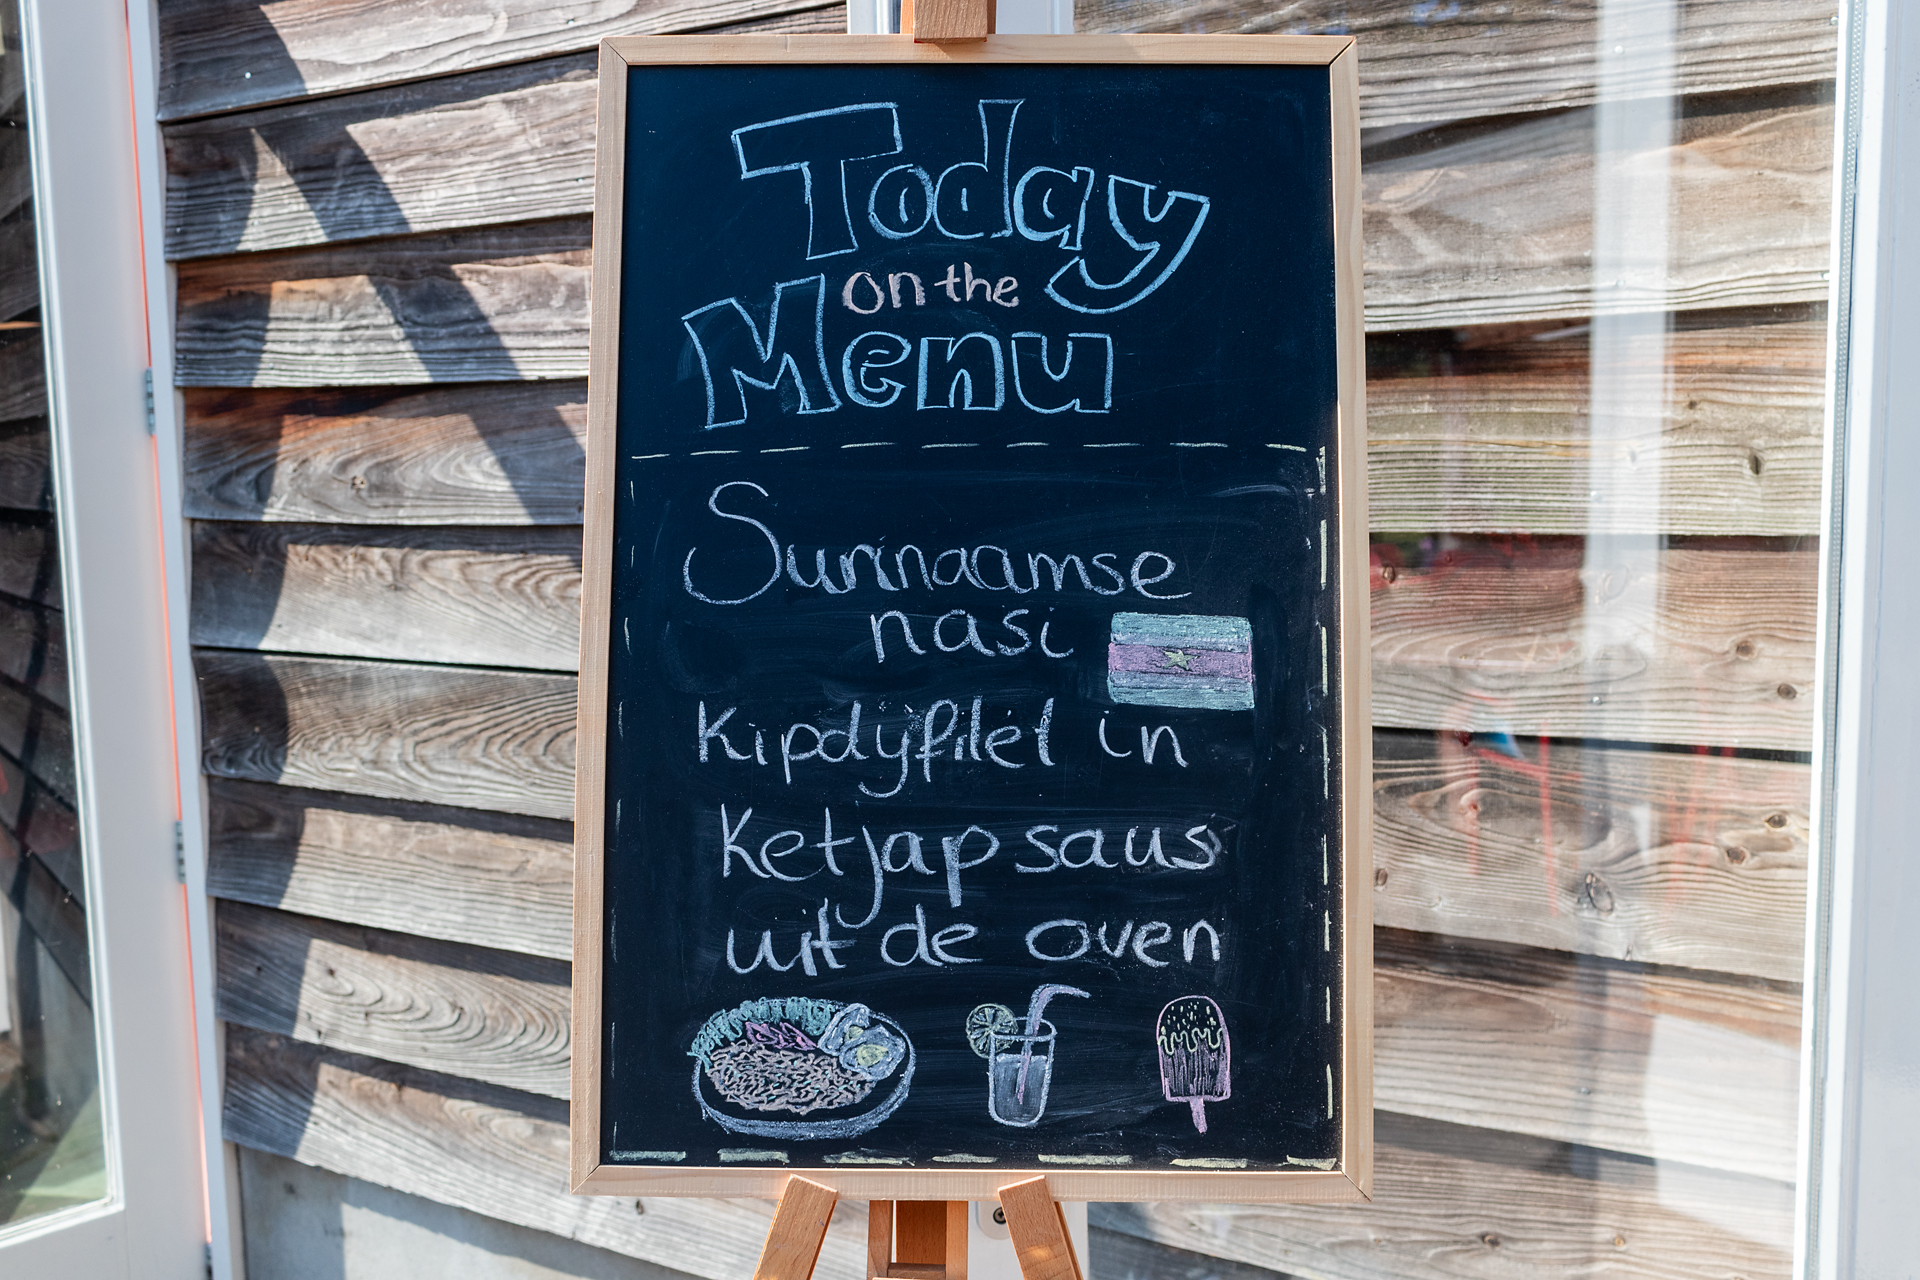 Today
on the
Menu
Surinaamse
nasi
Kipdijfilet in
Ketjap saus
uit de oven